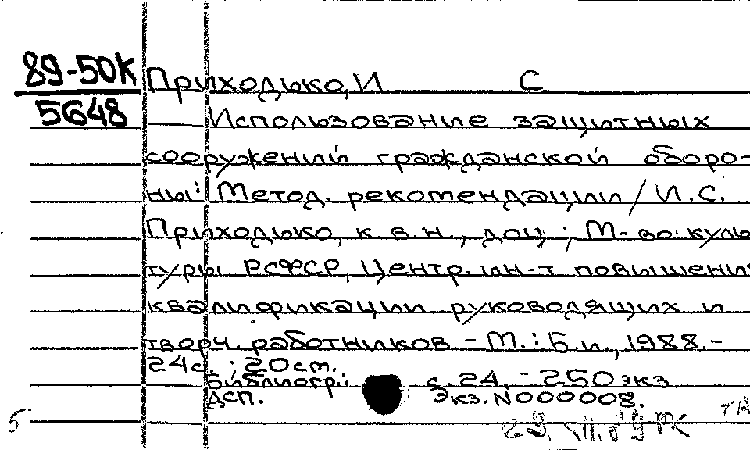 89-50К Приходько, И С
5648 Использование защитных
сооружений гражданской оборо-
ны: Метод. рекомендации / И.С.
Приходько, к в.н., доц; М-во куль
туры РСФСР, Центр. ин-т повышени
квалификации руководящих и
творч. работников - М.: Б и, 1988.-
24с. ; 20 см.
Библиогр.: с. 24. - 250 экз
ДСП. Экз. N000008.